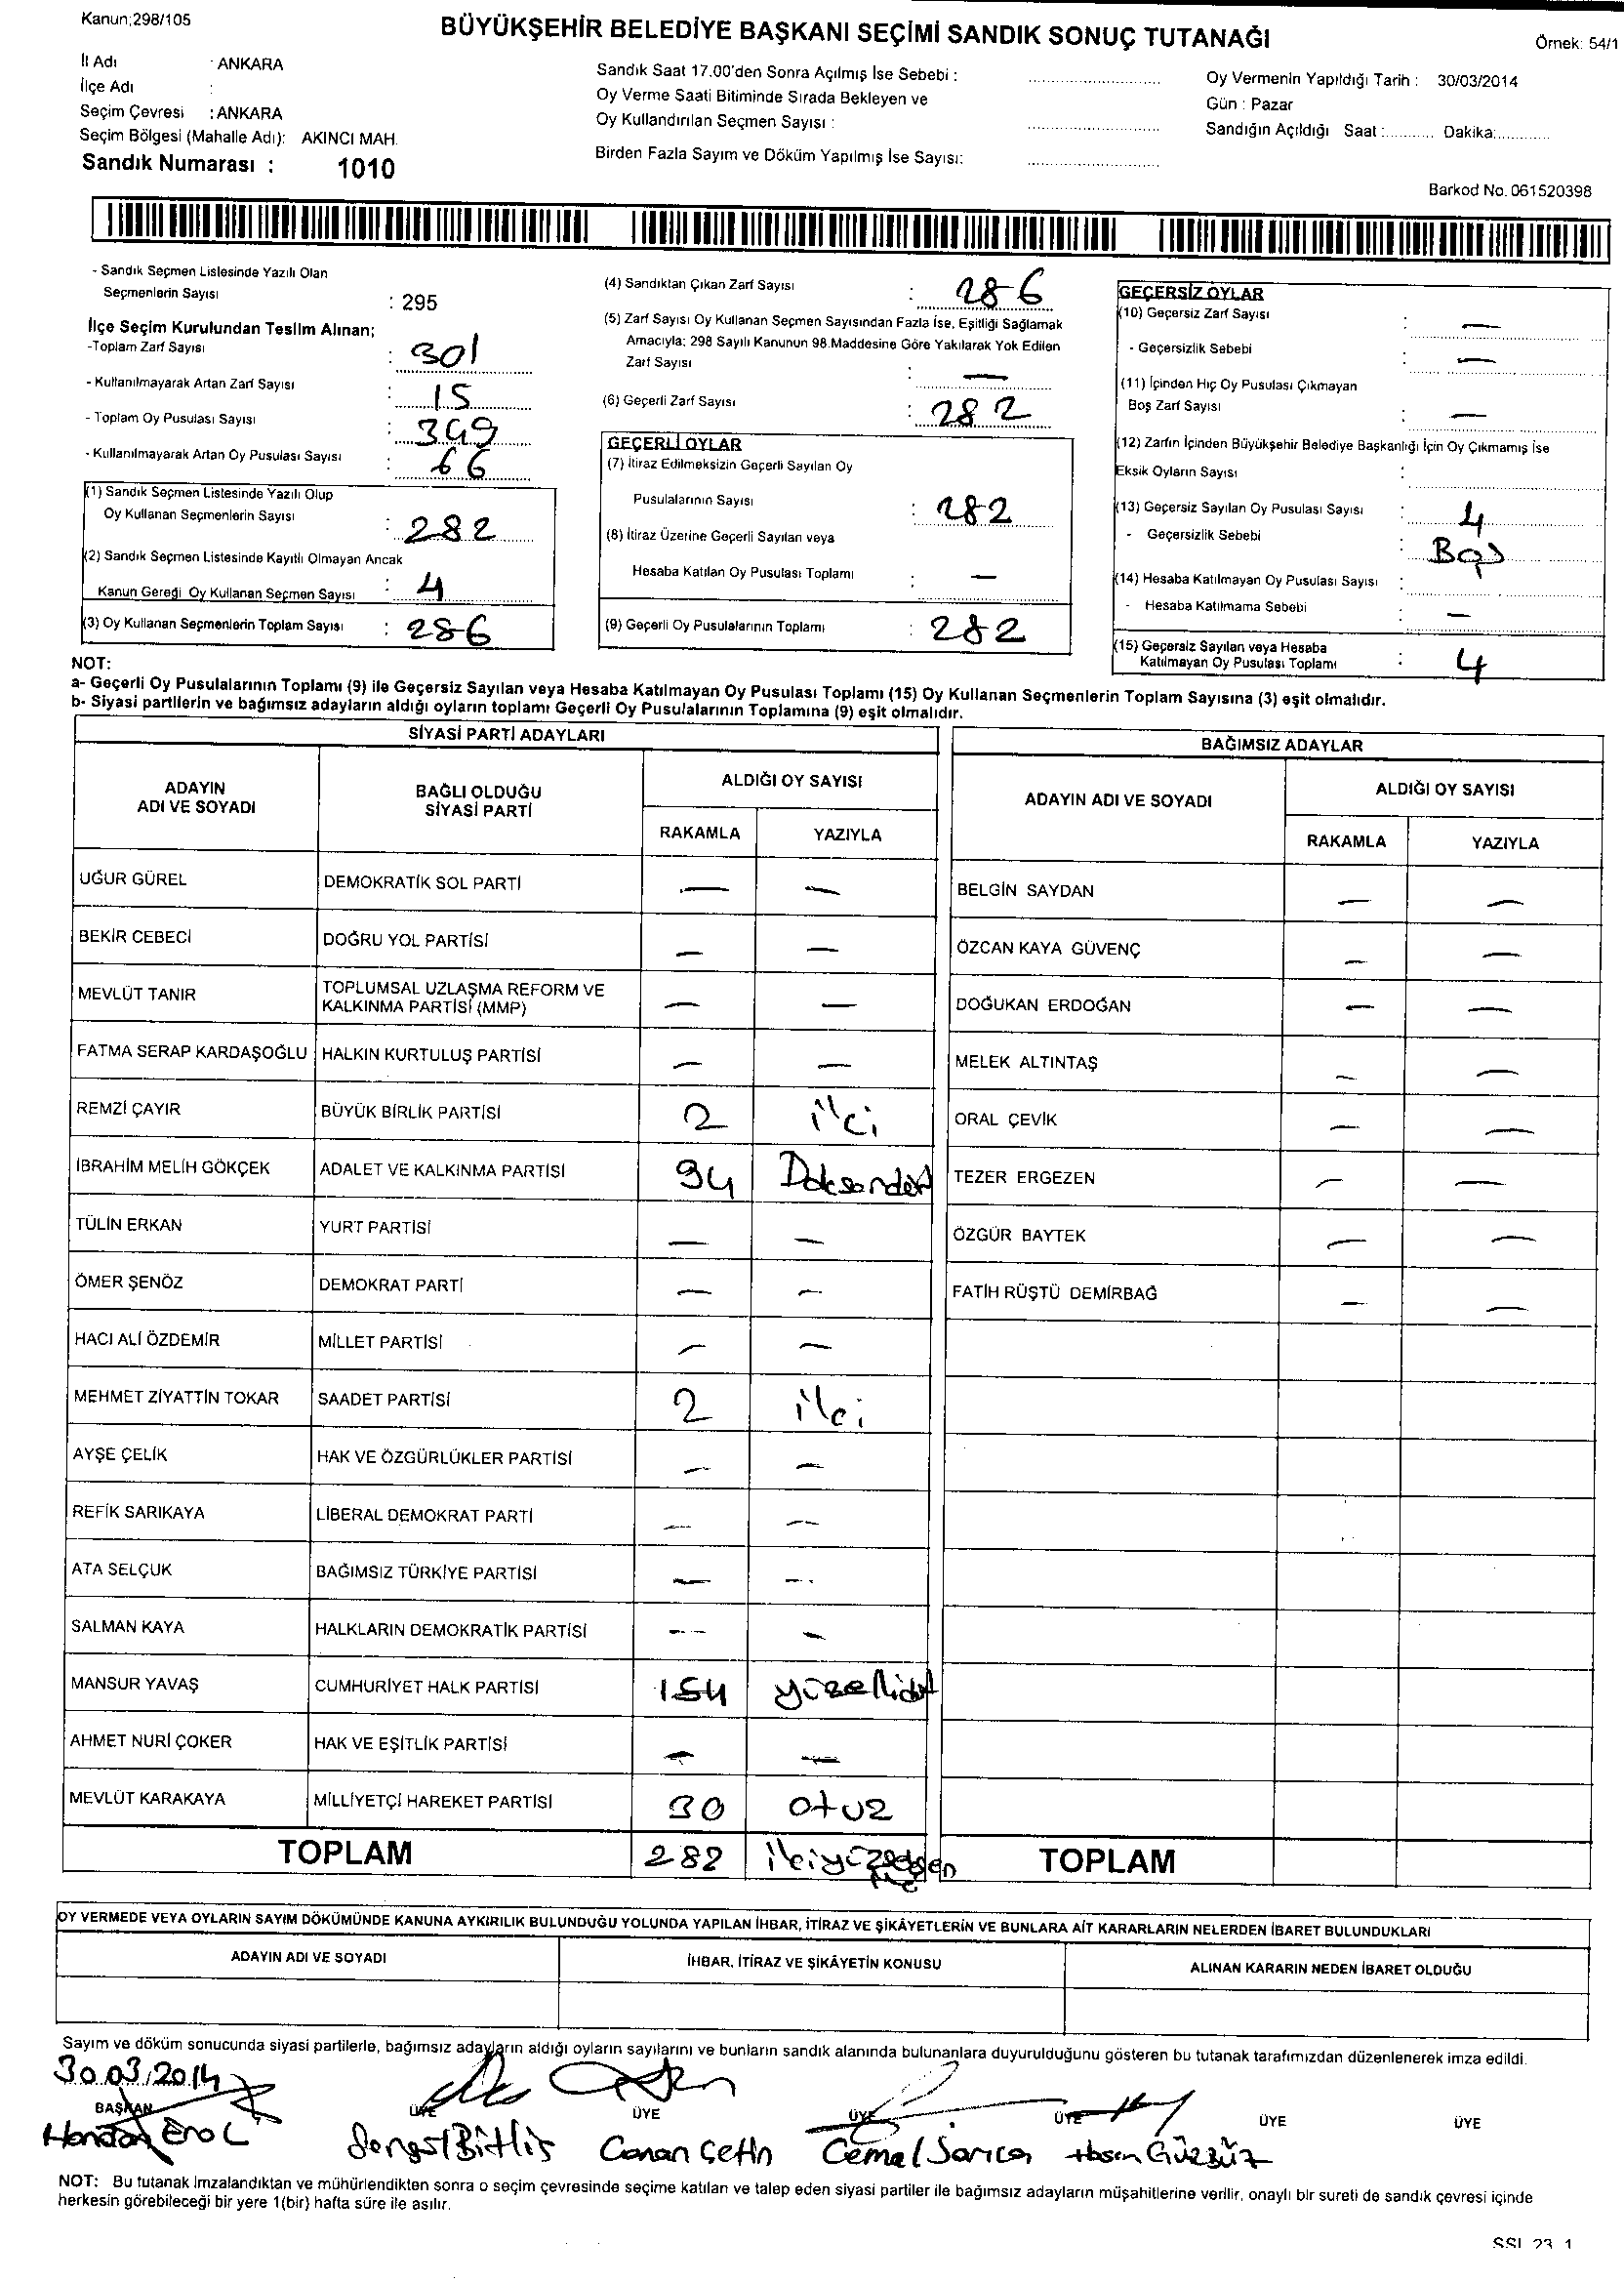 Kanun;298/105
BÜYÜKŞEHİR BELEDİYE BAŞKANI SEÇİMİ SANDIK SONUÇ TUTANAĞI
Örnek: 54/1
İl Adı : ANKARA
İlçe Adı :
Seçim Çevresi : ANKARA
Seçim Bölgesi (Mahalle Adı): AKINCI MAH.
Sandık Numarası : 1010
Sandık Saat 17.00'den Sonra Açılmış İse Sebebi :
Oy Verme Saati Bitiminde Sırada Bekleyen ve
Oy Kullandırılan Seçmen Sayısı :
Birden Fazla Sayım ve Döküm Yapılmış İse Sayısı:
Oy Vermenin Yapıldığı Tarih : 30/03/2014
Gün : Pazar
Sandığın Açıldığı Saat :........... Dakika:............
Barkod No. 061520398
- Sandık Seçmen Listesinde Yazılı Olan
Seçmenlerin Sayısı : 295
İlçe Seçim Kurulundan Teslim Alınan;
-Toplam Zarf Sayısı : 301
- Kullanılmayarak Artan Zarf Sayısı : 15
- Toplam Oy Pusulası Sayısı : 349
- Kullanılmayarak Artan Oy Pusulası Sayısı : 66
(1) Sandık Seçmen Listesinde Yazılı Olup
Oy Kullanan Seçmenlerin Sayısı : 282
(2) Sandık Seçmen Listesinde Kayıtlı Olmayan Ancak
Kanun Gereği Oy Kullanan Seçmen Sayısı : 4
(3) Oy Kullanan Seçmenlerin Toplam Sayısı : 286
(4) Sandıktan Çıkan Zarf Sayısı : 286
(5) Zarf Sayısı Oy Kullanan Seçmen Sayısından Fazla İse, Eşitliği Sağlamak
Amacıyla: 298 Sayılı Kanunun 98.Maddesine Göre Yakılarak Yok Edilen
Zarf Sayısı : —
(6) Geçerli Zarf Sayısı : 282
GEÇERLİ OYLAR
(7) İtiraz Edilmeksizin Geçerli Sayılan Oy
Pusulalarının Sayısı : 282
(8) İtiraz Üzerine Geçerli Sayılan veya
Hesaba Katılan Oy Pusulası Toplamı : —
(9) Geçerli Oy Pusulalarının Toplamı : 282
GEÇERSİZ OYLAR
(10) Geçersiz Zarf Sayısı : —
- Geçersizlik Sebebi : —
(11) İçinden Hiç Oy Pusulası Çıkmayan
Boş Zarf Sayısı : —
(12) Zarfın İçinden Büyükşehir Belediye Başkanlığı İçin Oy Çıkmamış İse
Eksik Oyların Sayısı :
(13) Geçersiz Sayılan Oy Pusulası Sayısı : 4
- Geçersizlik Sebebi : Boş
(14) Hesaba Katılmayan Oy Pusulası Sayısı :
- Hesaba Katılmama Sebebi : —
(15) Geçersiz Sayılan veya Hesaba
Katılmayan Oy Pusulası Toplamı : 4
NOT:
a- Geçerli Oy Pusulalarının Toplamı (9) ile Geçersiz Sayılan veya Hesaba Katılmayan Oy Pusulası Toplamı (15) Oy Kullanan Seçmenlerin Toplam Sayısına (3) eşit olmalıdır.
b- Siyasi partilerin ve bağımsız adayların aldığı oyların toplamı Geçerli Oy Pusulalarının Toplamına (9) eşit olmalıdır.
SİYASİ PARTİ ADAYLARI
ADAYIN ADI VE SOYADI BAĞLI OLDUĞU SİYASİ PARTİ ALDIĞI OY SAYISI
RAKAMLA YAZIYLA
UĞUR GÜREL DEMOKRATİK SOL PARTİ — —
BEKİR CEBECİ DOĞRU YOL PARTİSİ — —
MEVLÜT TANIR TOPLUMSAL UZLAŞMA REFORM VE KALKINMA PARTİSİ (MMP) — —
FATMA SERAP KARDAŞOĞLU HALKIN KURTULUŞ PARTİSİ — —
REMZİ ÇAYIR BÜYÜK BİRLİK PARTİSİ 2 iki
İBRAHİM MELİH GÖKÇEK ADALET VE KALKINMA PARTİSİ 94 Doksandört
TÜLİN ERKAN YURT PARTİSİ — —
ÖMER ŞENÖZ DEMOKRAT PARTİ — —
HACI ALİ ÖZDEMİR MİLLET PARTİSİ — —
MEHMET ZİYATTİN TOKAR SAADET PARTİSİ 2 iki
AYŞE ÇELİK HAK VE ÖZGÜRLÜKLER PARTİSİ — —
REFİK SARIKAYA LİBERAL DEMOKRAT PARTİ — —
ATA SELÇUK BAĞIMSIZ TÜRKİYE PARTİSİ — —
SALMAN KAYA HALKLARIN DEMOKRATİK PARTİSİ — —
MANSUR YAVAŞ CUMHURİYET HALK PARTİSİ 154 yüzellidört
AHMET NURİ ÇOKER HAK VE EŞİTLİK PARTİSİ — —
MEVLÜT KARAKAYA MİLLİYETÇİ HAREKET PARTİSİ 30 otuz
TOPLAM 282
BAĞIMSIZ ADAYLAR
ADAYIN ADI VE SOYADI ALDIĞI OY SAYISI
RAKAMLA YAZIYLA
BELGİN SAYDAN — —
ÖZCAN KAYA GÜVENÇ — —
DOĞUKAN ERDOĞAN — —
MELEK ALTINTAŞ — —
ORAL ÇEVİK — —
TEZER ERGEZEN — —
ÖZGÜR BAYTEK — —
FATİH RÜŞTÜ DEMİRBAĞ — —
TOPLAM
OY VERMEDE VEYA OYLARIN SAYIM DÖKÜMÜNDE KANUNA AYKIRILIK BULUNDUĞU YOLUNDA YAPILAN İHBAR, İTİRAZ VE ŞİKÂYETLERİN VE BUNLARA AİT KARARLARIN NELERDEN İBARET BULUNDUKLARI
ADAYIN ADI VE SOYADI İHBAR, İTİRAZ VE ŞİKÂYETİN KONUSU ALINAN KARARIN NEDEN İBARET OLDUĞU
Sayım ve döküm sonucunda siyasi partilerle, bağımsız adayların aldığı oyların sayılarını ve bunların sandık alanında bulunanlara duyurulduğunu gösteren bu tutanak tarafımızdan düzenlenerek imza edildi.
30.03.2014
BAŞKAN ÜYE ÜYE ÜYE ÜYE ÜYE ÜYE
Handan Erol Bitlis Canan Çetin Cemal Sarıca
NOT: Bu tutanak imzalandıktan ve mühürlendikten sonra o seçim çevresinde seçime katılan ve talep eden siyasi partiler ile bağımsız adayların müşahitlerine verilir, onaylı bir sureti de sandık çevresi içinde
herkesin görebileceği bir yere 1(bir) hafta süre ile asılır.